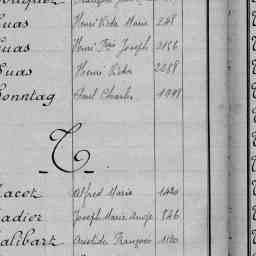 uas Henri Victor Marie 248
uas Henri Fois Joseph 2156
uas Henri Victor 2088
onntag Paul Charles 1998
T
acoz Alfred Marie
adier Joseph Marie 846
alibart Aristide François 1180